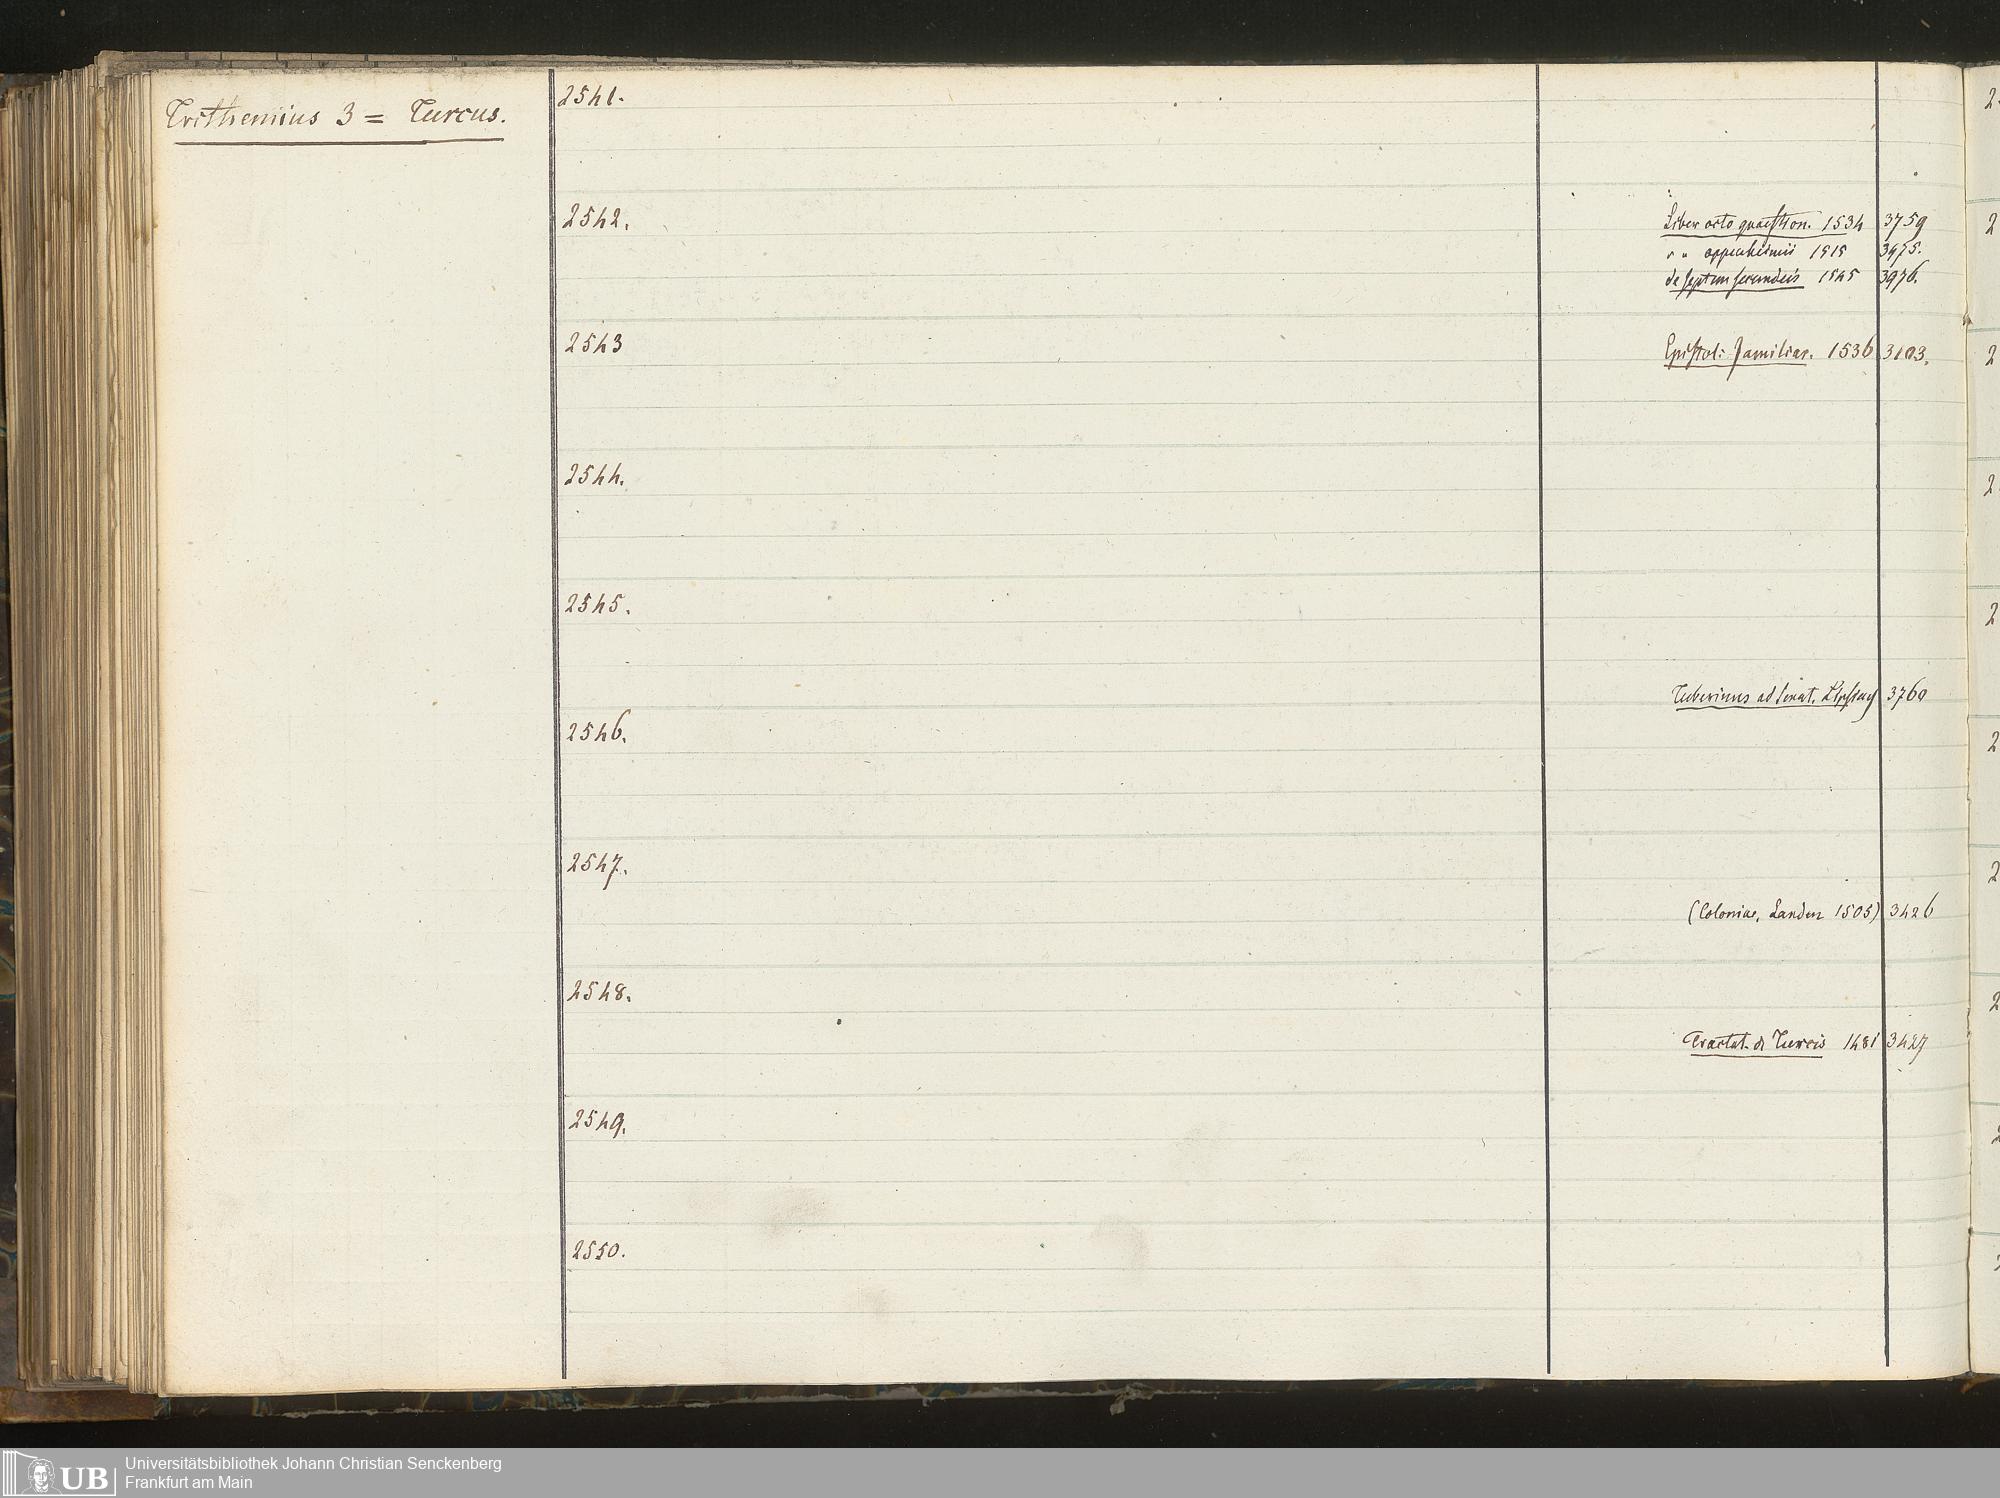 Trithemius 3 = Turcus.
2541.
2542.
Liber octo quaestion. 1534 3759
" " oppenheimii 1515 3475.
de septem secundeis 1545 3976.
2543
Epistol: familiar. 1536 3103.
2544.
2545.
Tuberinus ad Senat. 3760
2546.
2547.
(Coloniae, Landen 1505) 3426
2548.
Tractat. de Turcis 1481 3427
2549.
2550.
2
2
2
2
2
2
2
2
2
UB
Universitätsbibliothek Johann Christian Senckenberg
Frankfurt am Main